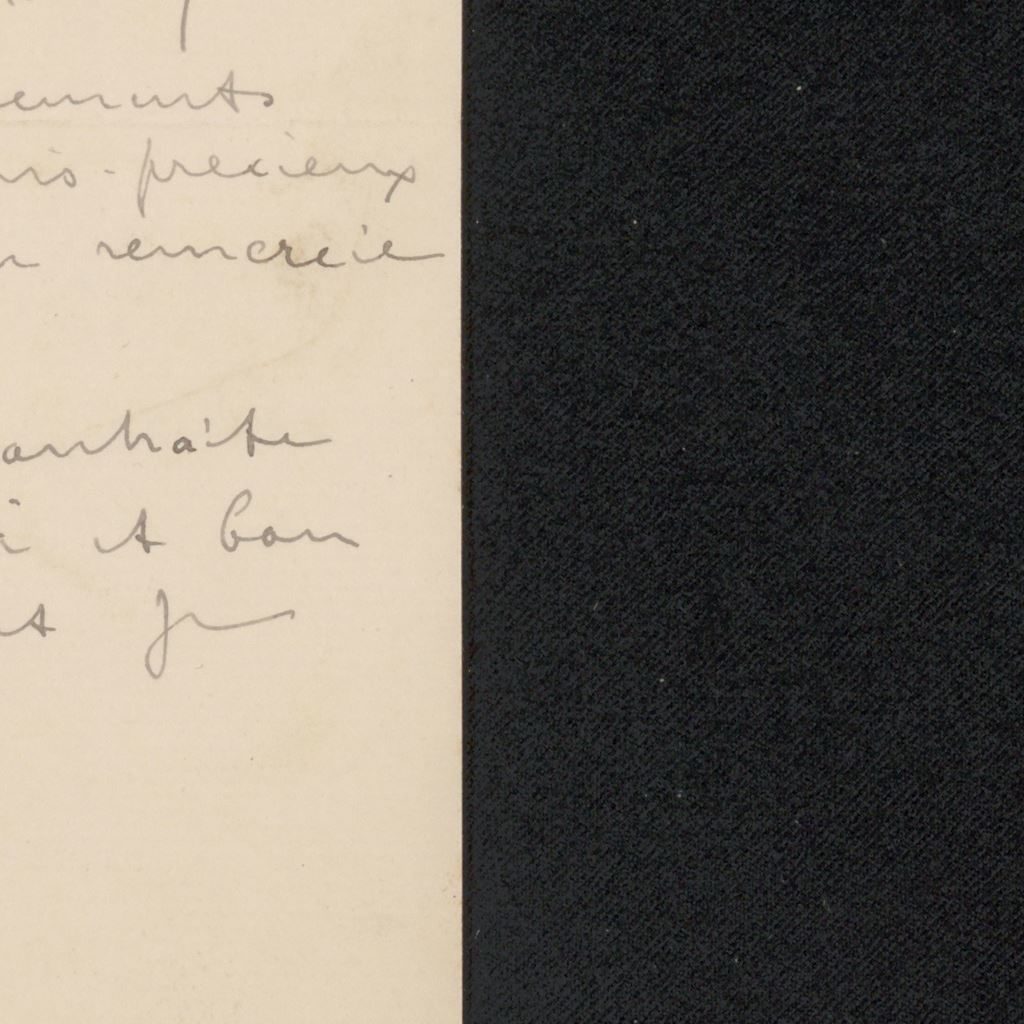 ements
precieux
remercie
souhaite
et bon
Je